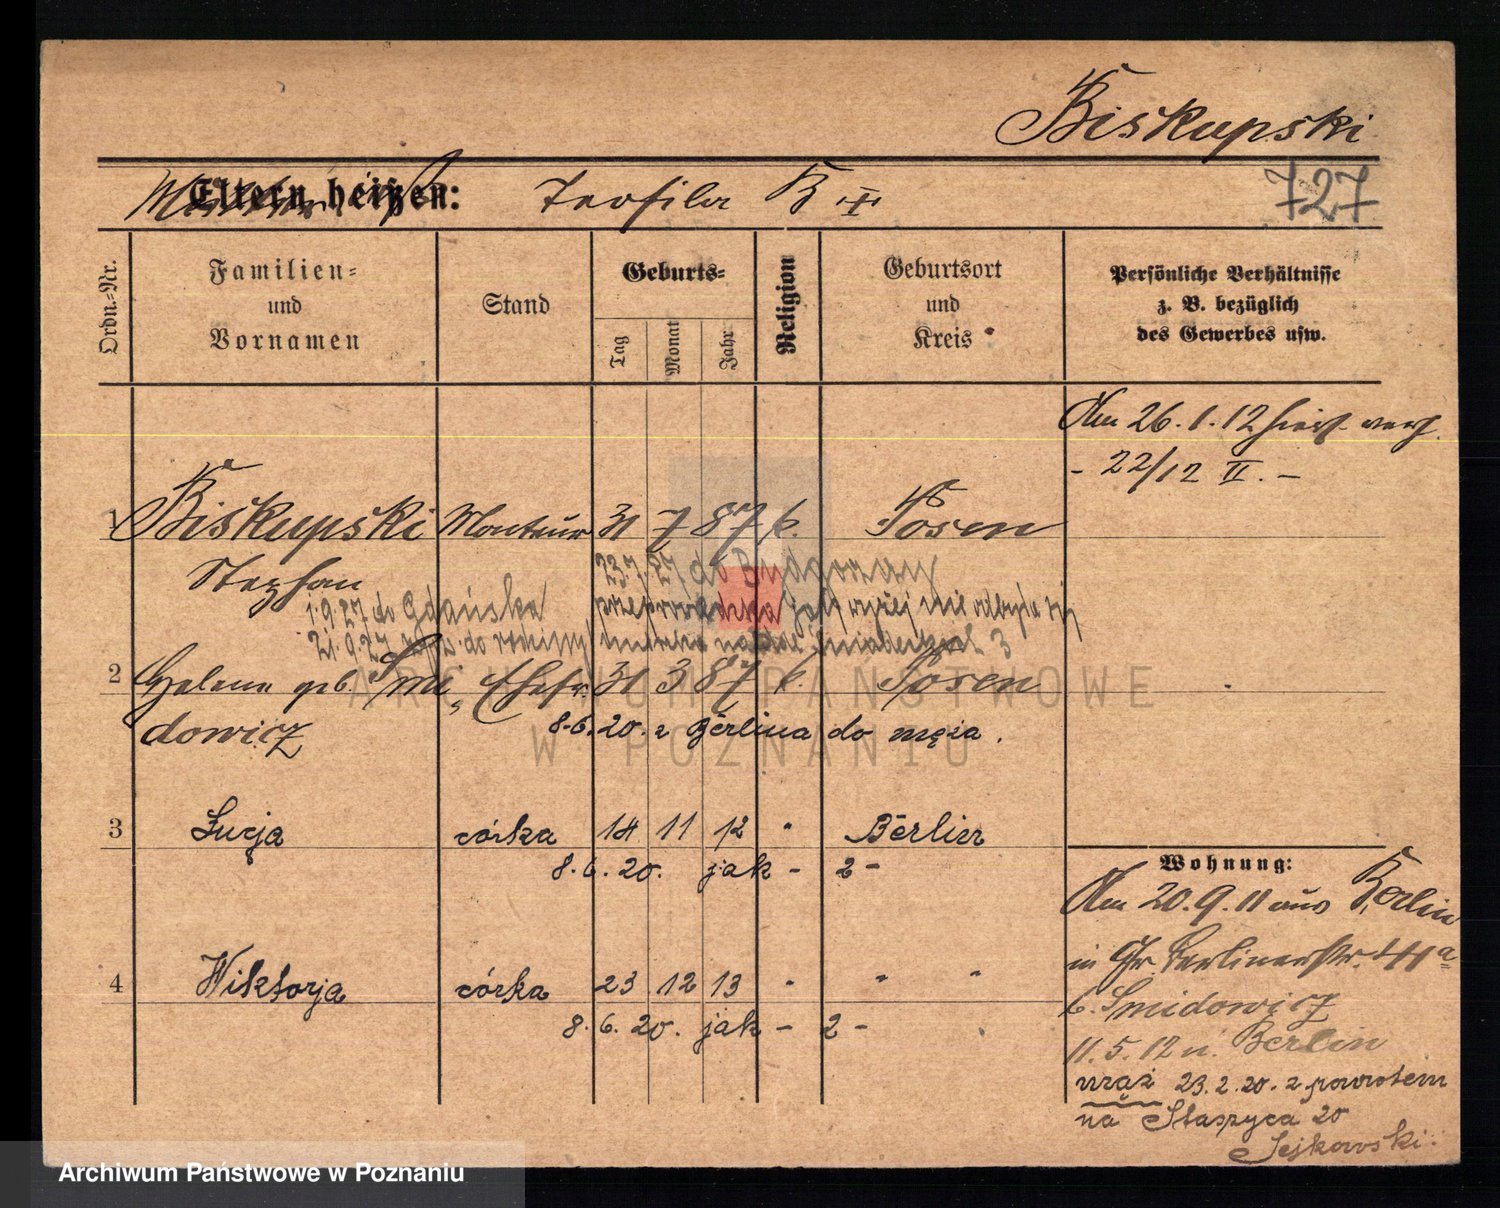 Biskupski
727
Eltern heißen: Teofila B II
Ordn.-Nr.
Familien-
und
Vornamen
Stand
Geburts-
Tag
Monat
Jahr
Religion
Geburtsort
und
Kreis
Persönliche Verhältnisse
z. B. bezüglich
des Gewerbes usw.
Am 26.1.12 hier verh.
- 22/12 II. -
1 Biskupski Monteur 31 7 87 k. Posen
Stephan
23.7.27 do Bydgoszczy
1.9.27 do Gdańska przeprowadzka jak wyżej nie odbyła się
21.9.27 do rodziny
2 Helene geb. Smi- Ehefr. 31 3 87 k. Posen
dowicz
8.6.20. z Berlina do męża.
3 Łucja córka 14 11 12 " Berlin
8.6.20. jak - 2 -
4 Wiktorja córka 23 12 13 " " "
8.6.20. jak - 2 -
Wohnung:
Am 20.9.11 aus Berlin
in Gr. Berlinerstr. 41a
b. Smidowicz
11.5.12 n. Berlin
mąż 23.2.20. z powrotem
na Staszyca 20
Sejkowski
ARCHIWUM PAŃSTWOWE
W POZNANIU
Archiwum Państwowe w Poznaniu